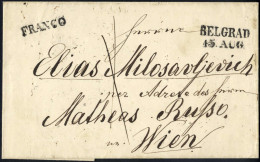 FRANCO
BELGRAD
15. AUG.
Herrn
Elias Milosavljevich
per Adresse des Herrn
Matheas Russo.
Wien